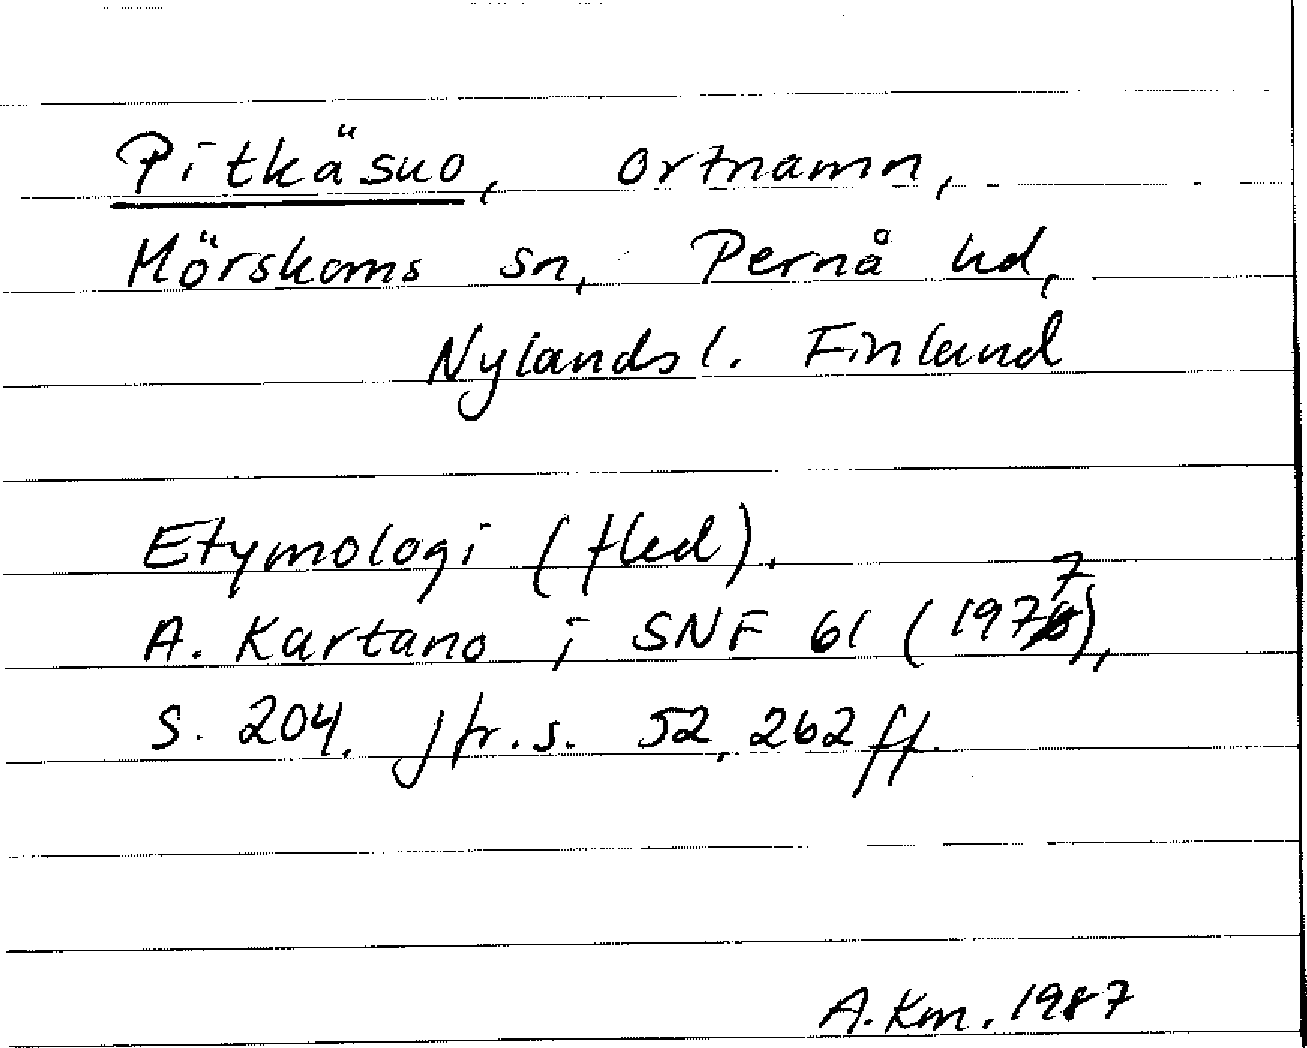 Pitkäsuo, ortnamn,
Mörskoms sn, Pernå hd,
Nylands l. Finland
Etymologi (fled).
A. Kartano i SNF 61 (1977),
S. 204. Jfr. s. 52, 262 ff.
A. Km. 1987